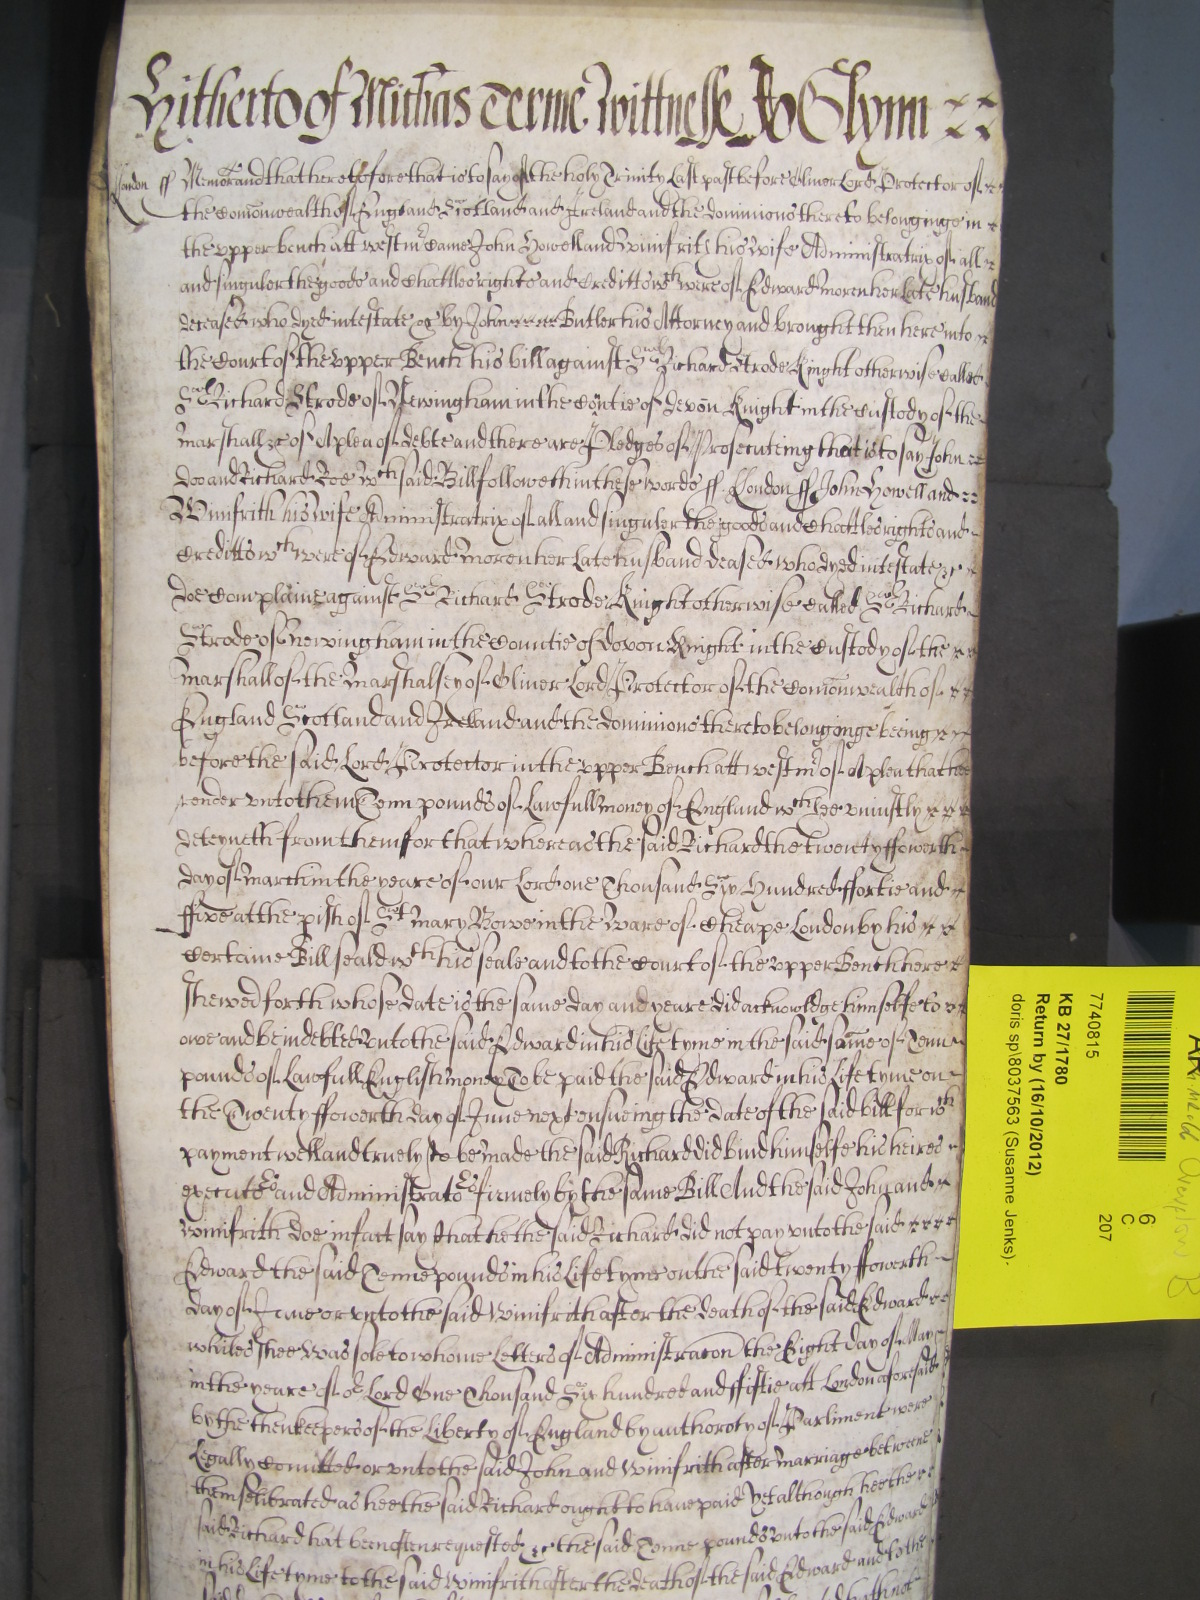 Hitherto of Michas Terme Wittnesse Jo Glynn
London ss Memorand that heretofore that is to say of the holy Trinity Last past before Oliver Lord Protector of
the Comonwealth of England Scotland and Ireland and the dominions thereto belonginge in
the upper bench att Westmr Came John Howell and Winifrith his wife Administratrix of all
and singuler the goods and Chattles rights and Creditts wch were of Edward Morenker Late husband
deceased who dyed intestate &c by John Butler his Attorney and brought then here into
the Court of the upper Bench his bill against Sr Richard Strode Knight otherwise called
Sr Richard Strode of Newingham in the Countie of Devon Knight in the Custody of the
Marshall &c of A plea of debte and there are Pledges of Prosecuteing that is to say John
Doo and Richard Roe wch said Bill followeth in these words ss London ss John Howell and
Winifrith his wife Administratrix of all and singuler the goods and Chattles rights and
Creditts wch were of Edward Morenker Late husband deased who dyed intestate &c
doe Complaine against Sr Richard Strode Knight otherwise Called Sr Richard
Strode of Newingham in the Countie of Devon Knight in the Custody of the
Marshall of the Marshalsey of Oliver Lord Protector of the Comonwealth of
England Scotland and Ireland and the dominions thereto belonginge being
before the said Lord Protector in the upper Bench att Westmr of A plea that hee
render unto them Tenn pounds of Lawfull money of England wch hee uniustly
deteyneth from them for that whereas the said Richard the twenty ffowerth
day of March in the yeare of our Lord one Thousand Six Hundred ffortie and
ffive at the pish of St Mary Bowe in the Ward of Cheape London by his
Certaine Bill seald wth his seale and to the Court of the upper Bench here
shewed forth whose date is the same day and yeare did acknowledge himselfe to
owe and be indebted unto the said Edward in his Life tyme in the said same of Tenn
pounds of Lawfull English money To be paid the said Edward in his Life tyme on
the Twenty ffowerth day of June next ensueing the date of the said bill for wch
payment well and truely to be made the said Richard did bind himselfe his heires
executors and Administrators firmely by the same Bill And the said John and
Winifrith doe in fact say that he the said Richard did not pay unto the said
Edward the said Tenne pounds in his Life tyme on the said twenty ffowerth
day of June or unto the said Winifrith after the death of the said Edward
whiles shee was sole to whome Letters of Administracon the Eight day of May
in the yeare of or Lord One Thousand Six hundred and ffiftie att London aforesaid
by the then keepers of the Liberty of England by authoroty of Parliment were
Legally Comitted or unto the said John and Winifrith after marriage betweene
them selibrated as hee the said Richard ought to have paid Yet although hee the
said Richard hat been often requested &c the said Tenne pounds unto the said Edward
in his Life tyme to the said Winifrith after the death of the said Edward and to the
7740815
KB 27/1780
Return by (16/10/2012)
doris sp\8037563 (Susanne Jenks)
6
C
207